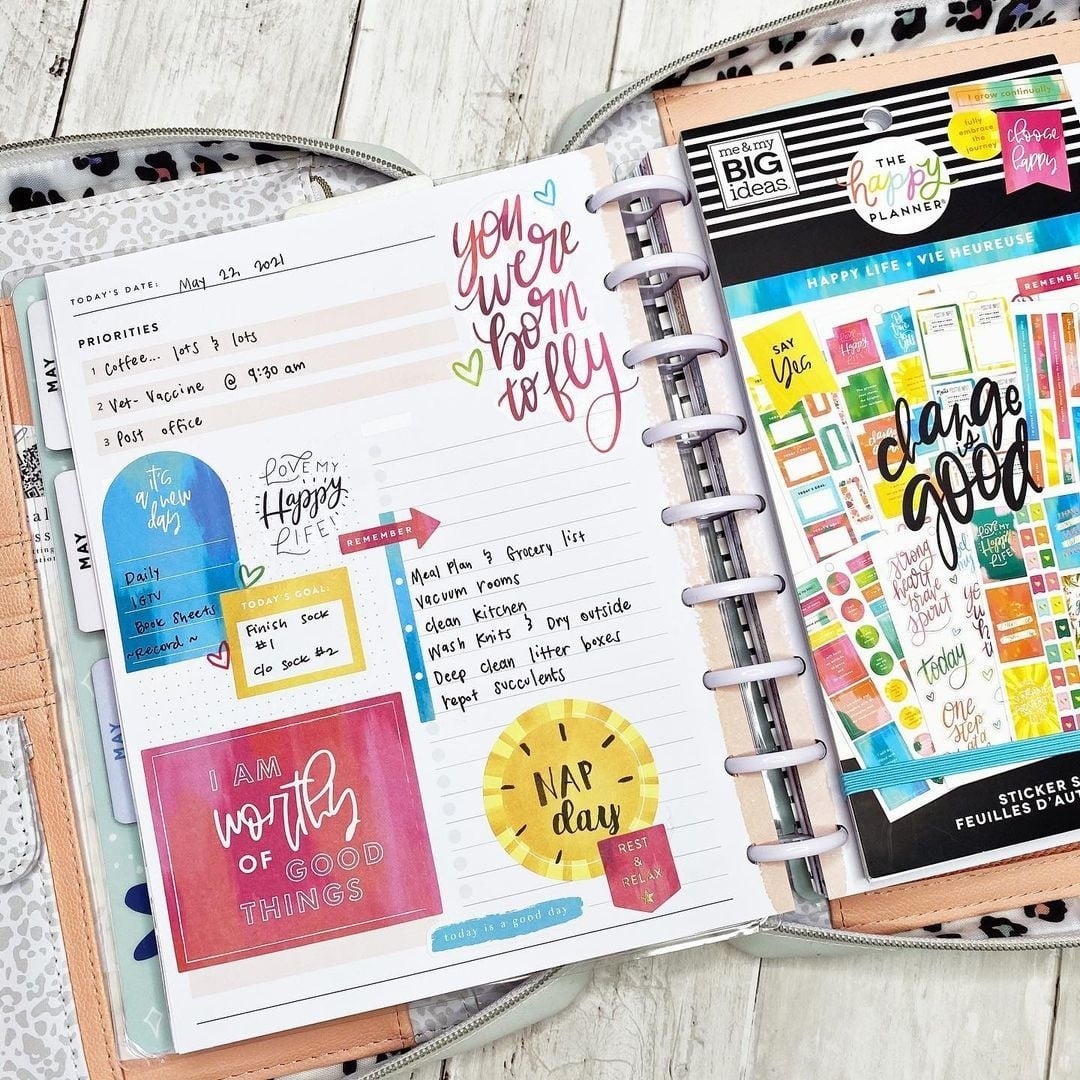 TODAY'S DATE: May 22 2021
PRIORITIES
1 Coffee... lots & lots
2 Vet- Vaccine @ 9:30 am
3 Post office
you
were
born
to fly
MAY
MAY
MAY
it's
a new
day
Daily
IGTV
Book Sheets
~Record~
LOVE MY
Happy
LIFE!
REMEMBER
TODAY'S GOAL:
Finish sock
#1
c/o sock #2
Meal Plan & Grocery list
Vacuum rooms
clean Kitchen
Wash Knits & Dry outside
Deep clean litter boxes
repot succulents
I AM
worthy
OF GOOD
THINGS
NAP
day
REST
&
RELAX
today is a good day
me & my
BIG
ideas.
THE
happy
PLANNER
I grow continually
fully
embrace the
journey
choose
happy
HAPPY LIFE • VIE HEUREUSE
REMEMBER
SAY
Yes
change
is
good
strong
heart
brave
spirit
today
One
step
at a
STICKER S
FEUILLES D'AUT